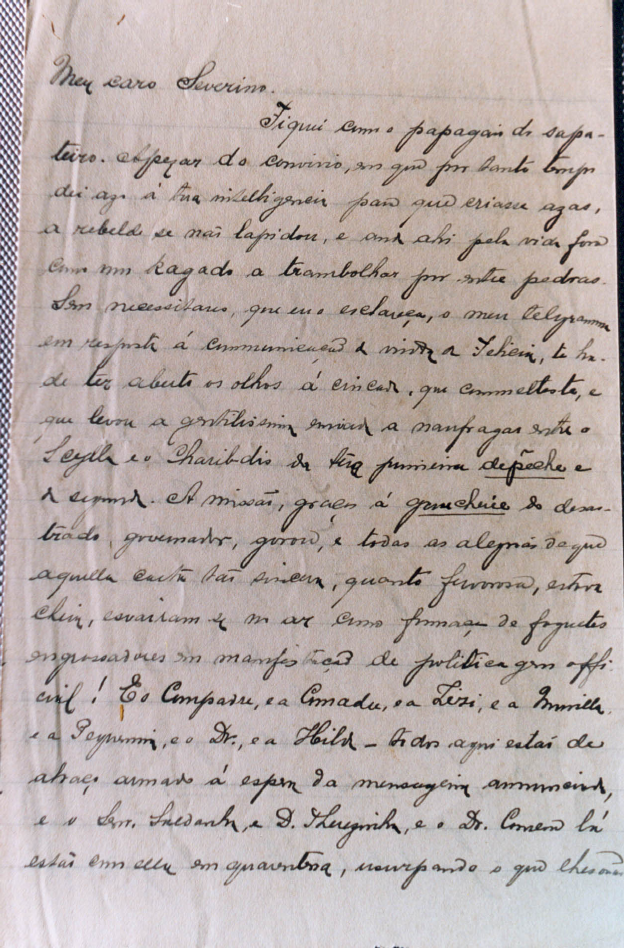 Meu caro Severino.
Fiquei como o papagaio do sapa-
teiro. Apezar do convivio, em que por tanto tempo
dei azo á tua intelligencia para que criasse azas,
a rebelde se não lapidou, e anda ahi pela vida fora
como um kagado a trambolhar por entre pedras.
Sem necessitares, que eu o esclareça, o meu telegramma
em resposta á communicação da vinda da, te ha-
de ter aberto os olhos á cincada, que commetteste, e
que levou a gentilissima enviada a naufragar entre o
Scylla e o Charibdis da tua primeira depêche e
da segunda. A missão, graças á gaucherie do desas-
trado, governador, gorou, e todas as alegrias de que
aquella carta tão sincera, quanto fervorosa, estava
cheia, esvairam-se no ar como fumaça de foguetes
engrossadores em manifestação de politicagem offi
cial! E o Compadre, e a Comadre, e a Zizi, e a
e a Pequenina, e o Dr., e a Hilda – todos aqui estão de
abraço armado á espera da mensageira annunciada,
e o Sen. Saldanha, e D. Therezinha, e o Dr. lá
estão com ella em quarentena, usurpando o que lhes